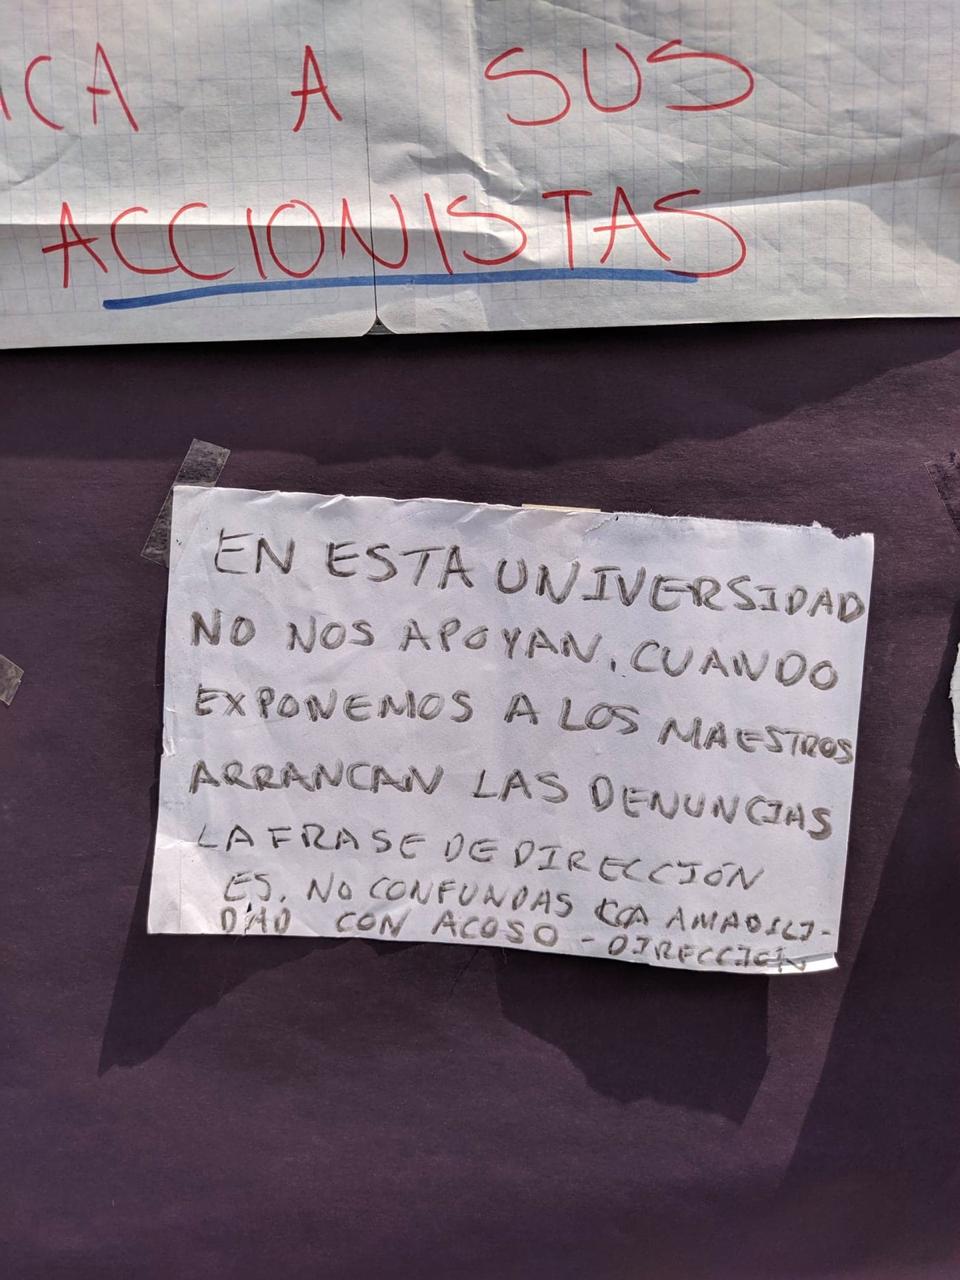 ICA A SUS
ACCIONISTAS
EN ESTA UNIVERSIDAD
NO NOS APOYAN, CUANDO
EXPONEMOS A LOS MAESTROS
ARRANCAN LAS DENUNCIAS
LA FRASE DE DIRECCIÓN
ES. NO CONFUNDAS LA AMABILI-
DAD CON ACOSO - DIRECCIÓN